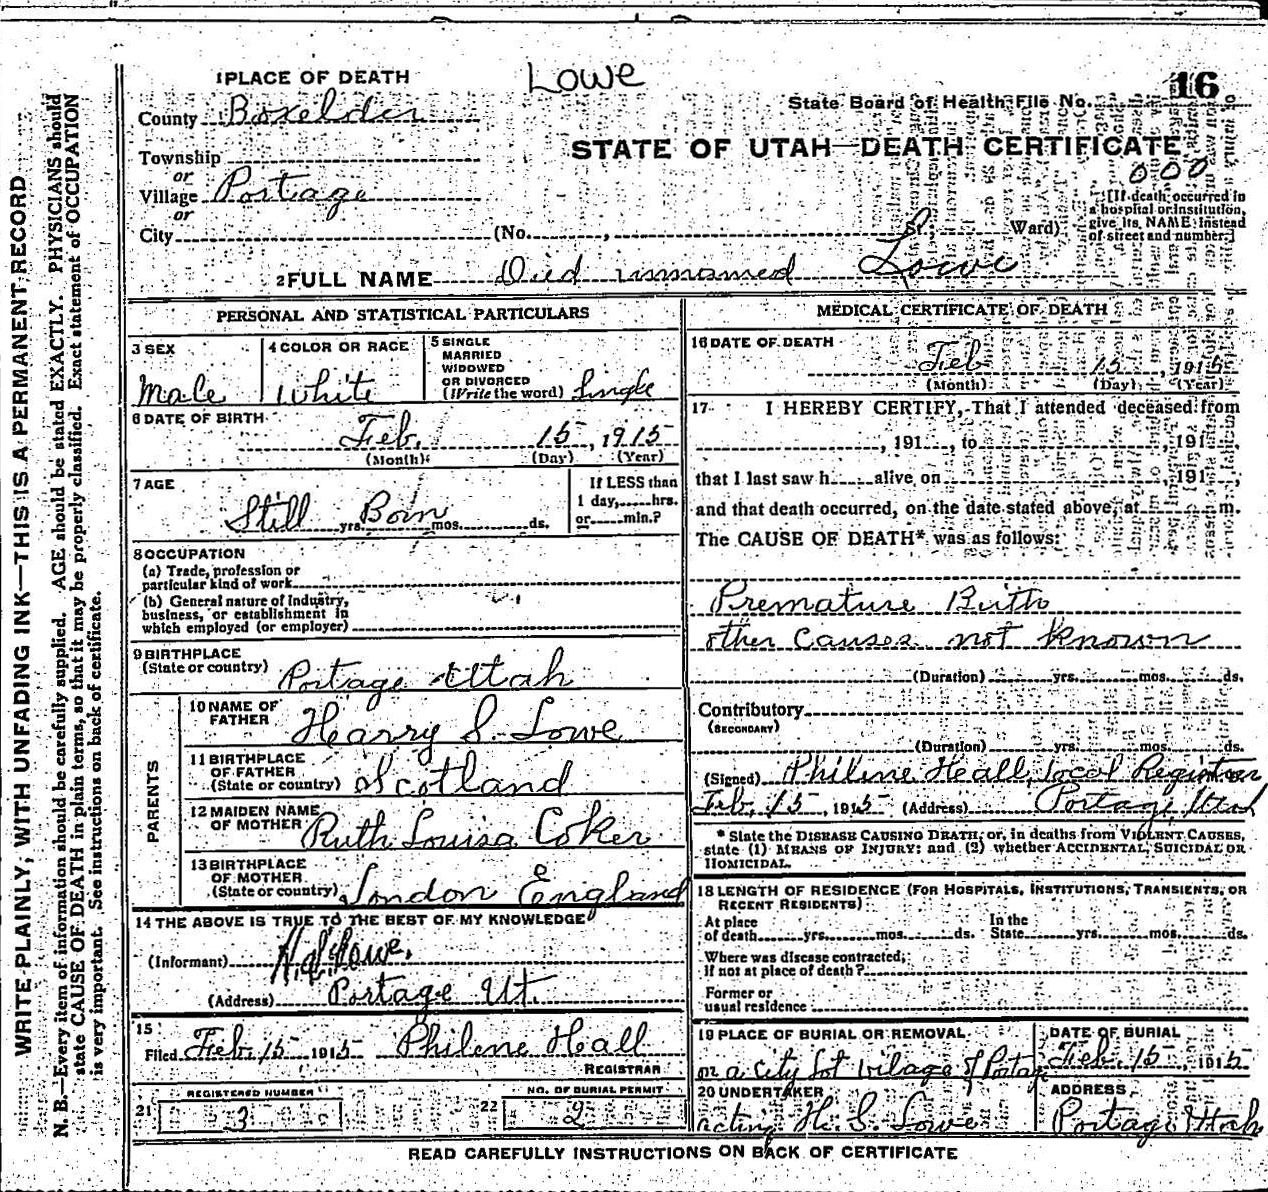 Lowe
16
1 PLACE OF DEATH
State Board of Health File No.
County Boxelder
STATE OF UTAH—DEATH CERTIFICATE
000
Township
or
Village Portage
or
City (No. , St., Ward)
[If death occurred in
a hospital or institution,
give its NAME instead
of street and number.]
2 FULL NAME Died unnamed Lowe
PERSONAL AND STATISTICAL PARTICULARS
3 SEX
Male
4 COLOR OR RACE
White
5 SINGLE
MARRIED
WIDOWED
OR DIVORCED
(Write the word) Single
6 DATE OF BIRTH
Feb. 15, 1915
(Month) (Day) (Year)
7 AGE
Still yrs. Born mos. ds.
If LESS than
1 day, hrs.
or min.?
8 OCCUPATION
(a) Trade, profession or
particular kind of work
(b) General nature of Industry,
business, or establishment in
which employed (or employer)
9 BIRTHPLACE
(State or country) Portage Utah
PARENTS
10 NAME OF
FATHER Harry S. Lowe
11 BIRTHPLACE
OF FATHER
(State or country) Scotland
12 MAIDEN NAME
OF MOTHER Ruth Louisa Coker
13 BIRTHPLACE
OF MOTHER
(State or country) London England
14 THE ABOVE IS TRUE TO THE BEST OF MY KNOWLEDGE
(Informant) H. S. Lowe.
(Address) Portage Ut.
15
Filed Feb. 15 1915 Philene Heall
REGISTRAR
REGISTERED NUMBER
21 3
NO. OF BURIAL PERMIT
22 2
MEDICAL CERTIFICATE OF DEATH
16 DATE OF DEATH
Feb 15, 1915
(Month) (Day) (Year)
17 I HEREBY CERTIFY, That I attended deceased from
, 191 , to , 191 ,
that I last saw h alive on 191 ,
and that death occurred, on the date stated above, at m.
The CAUSE OF DEATH* was as follows:
Premature Birth
other causes not known
(Duration) yrs. mos. ds.
Contributory
(SECONDARY)
(Duration) yrs. mos. ds.
(Signed) Philene Heall, local Registrar
Feb. 15, 1915 (Address) Portage, Utah
* State the DISEASE CAUSING DEATH; or, in deaths from VIOLENT CAUSES,
state (1) MEANS OF INJURY; and (2) whether ACCIDENTAL, SUICIDAL OR
HOMICIDAL.
18 LENGTH OF RESIDENCE (FOR HOSPITALS, INSTITUTIONS, TRANSIENTS, OR
RECENT RESIDENTS)
At place
of death yrs. mos. ds.
In the
State yrs. mos. ds.
Where was disease contracted,
if not at place of death?
Former or
usual residence
19 PLACE OF BURIAL OR REMOVAL
on a City lot vilage of Portage
DATE OF BURIAL
Feb. 15, 1915
20 UNDERTAKER
acting H. S. Lowe
ADDRESS
Portage Utah
READ CAREFULLY INSTRUCTIONS ON BACK OF CERTIFICATE
WRITE PLAINLY, WITH UNFADING INK—THIS IS A PERMANENT RECORD
N. B.—Every item of information should be carefully supplied. AGE should be stated EXACTLY. PHYSICIANS should
state CAUSE OF DEATH in plain terms, so that it may be properly classified. Exact statement of OCCUPATION
is very important. See instructions on back of certificate.